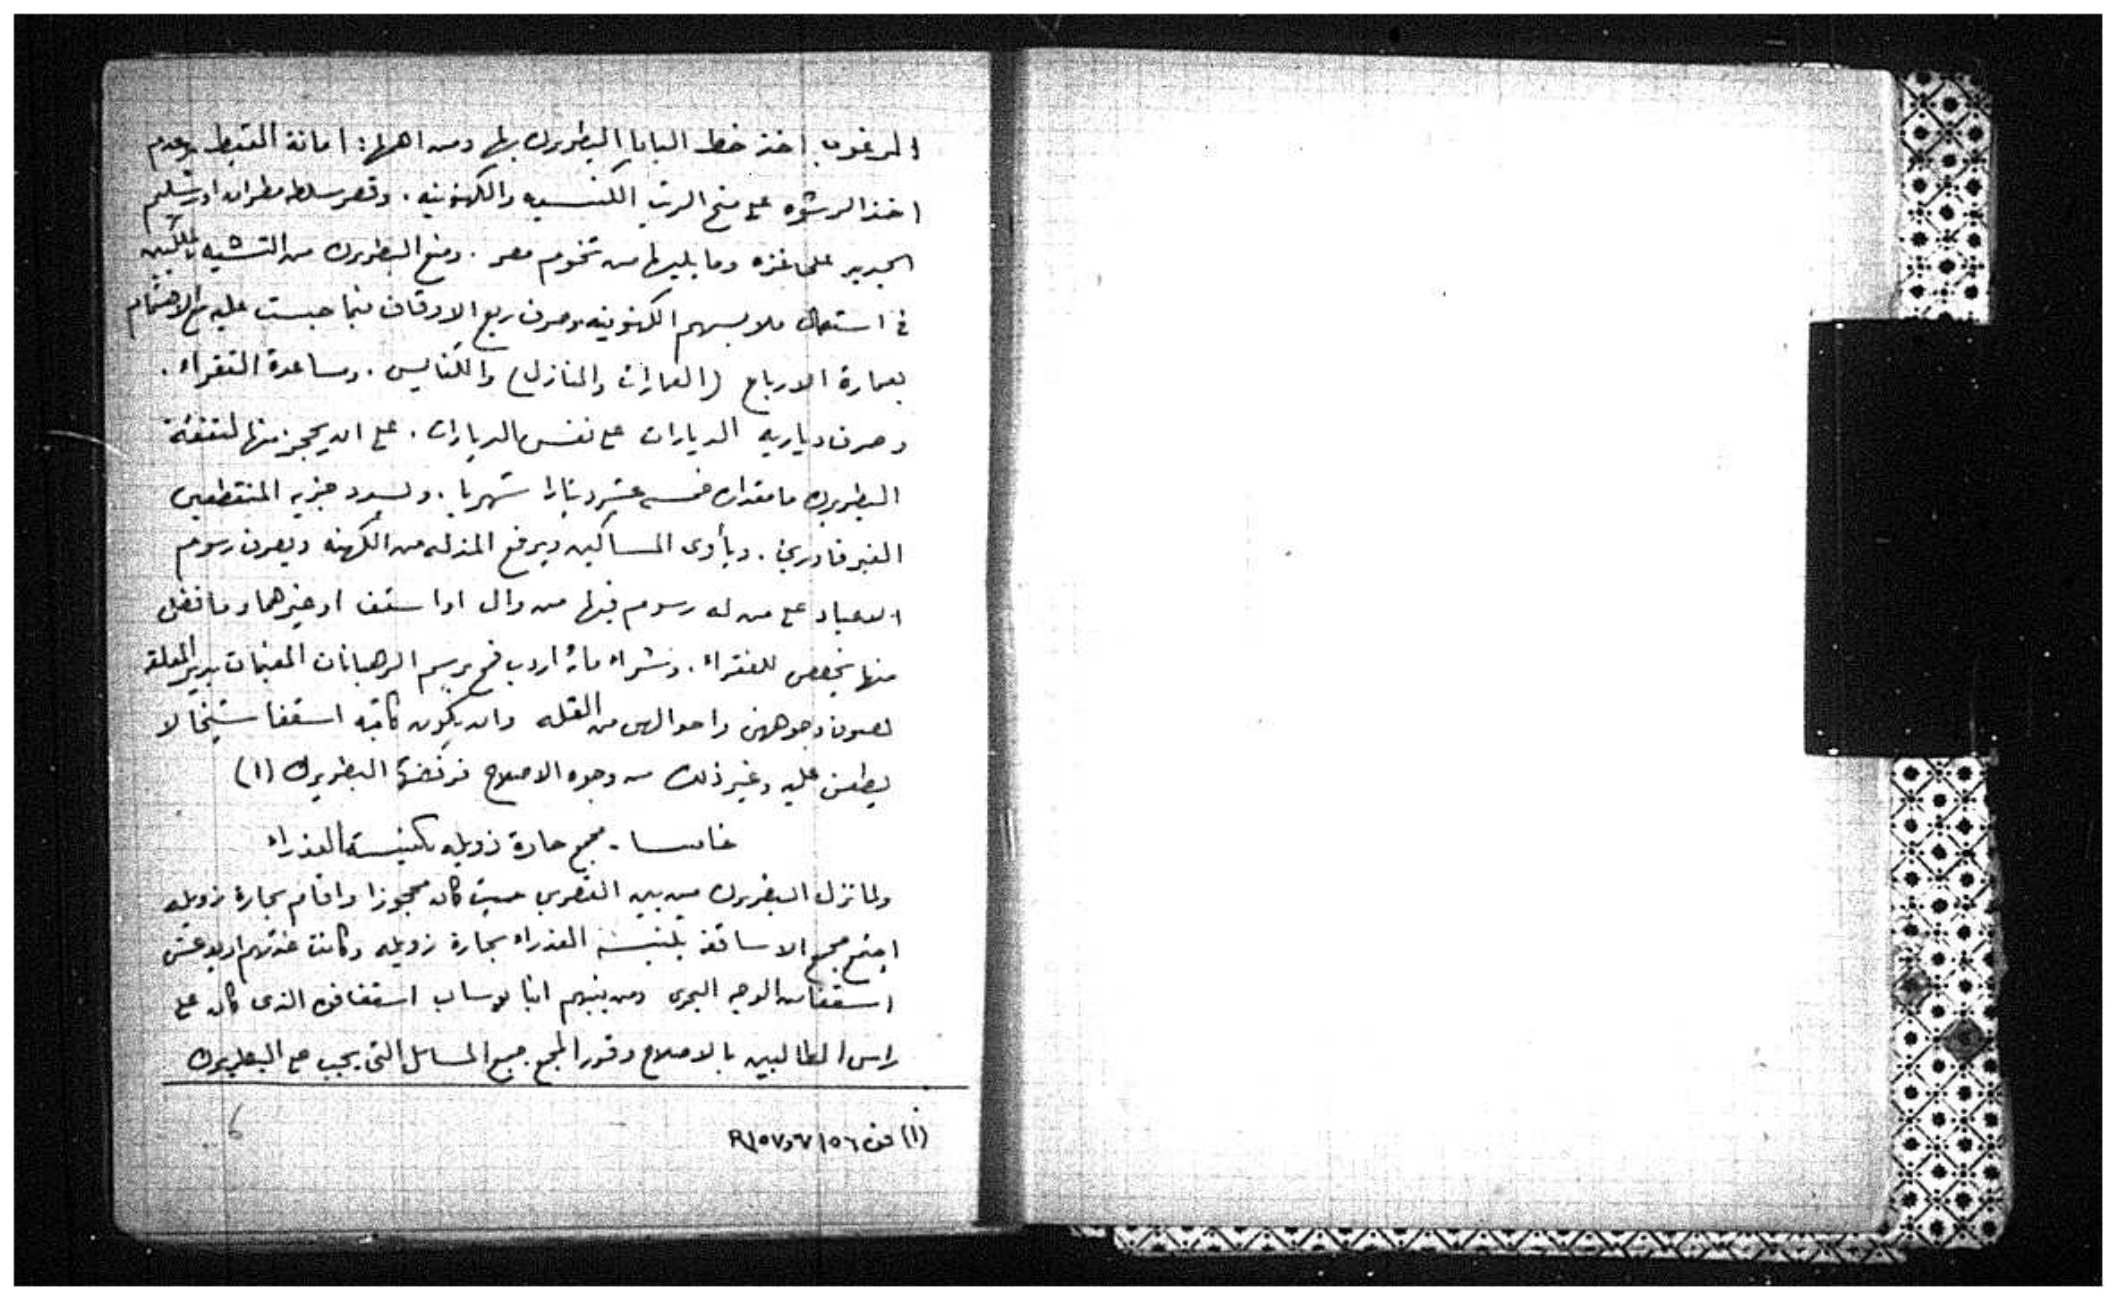 المرغوب اخذ خط البابا البطريرك بها ومن اهمها: امانة القبط وعدم
اخذ الرشوه على منح الرتب الكنسيه والكهنوتيه. وقصر سلطه مطران اورشليم
الجديد على غزه وما يليها من تخوم مصر. ومنع البطريرك من التشبه بالملكيين
فى استعمال ملابسهم الكهنوتيه وصرف ريع الاوقاف فيما حبست عليه مع الاهتمام
بعمارة الارباع (العمارات والمنازل) والكنايس. ومساعدة الفقراء.
وصرف دياريه الديارات على نفس الديارات. على ان يحجز منها لنفقة
البطريرك ما مقداره خمسه عشر دينارا شهريا. ويسدد جزيه المنقطعين
الغير قادرين. ويأوى المساكين ويرفع المذله من الكهنه ويصرف رسوم
الاعياد على من له رسوم فيها من وال او اسقف او غيرهما وما فضل
منها يخصص للفقراء. وشراء مائة اردب قمح برسم الرهبانات المقيمات بدير المعلقة
لصون وجوههن واحوالهن من القله وان يكون كاتبه اسقفا شيخا لا
يطعن عليه وغير ذلك من وجوه الاصلاح فرفضها البطريرك (١)
خامسا - مجمع حارة زويله بكنيسة العذراء
ولما نزل البطريرك من بين القصرين حيث كان محجوزا واقام بحارة زويله
اجتمع مجمع الاساقفة بكنيسة العذراء بحارة زويله وكانت عدتهم اربع عشر
اسقفا من الوجه البحرى ومن بينهم انبا يوساب اسقف فوه الذى كان على
راس الطالبين بالاصلاح وقرر المجمع جميع المسائل التى يجب على البطريرك
(١)
٦